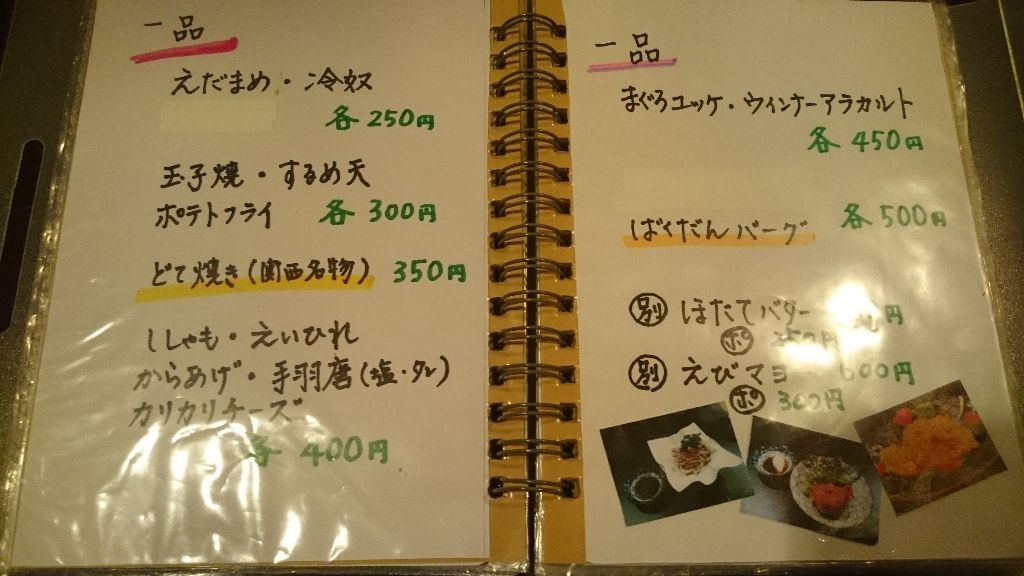 一品
えだまめ・冷奴
各250円
玉子焼・するめ天
ポテトフライ 各300円
どて焼き(関西名物) 350円
ししゃも・えいひれ
からあげ・手羽唐(塩・タレ)
カリカリチーズ
各400円
一品
まぐろユッケ・ウィンナーアラカルト
各450円
ばくだんバーグ 各500円
別 ほたてバター 円
ホ 350円
別 えびマヨ 600円
ホ 300円